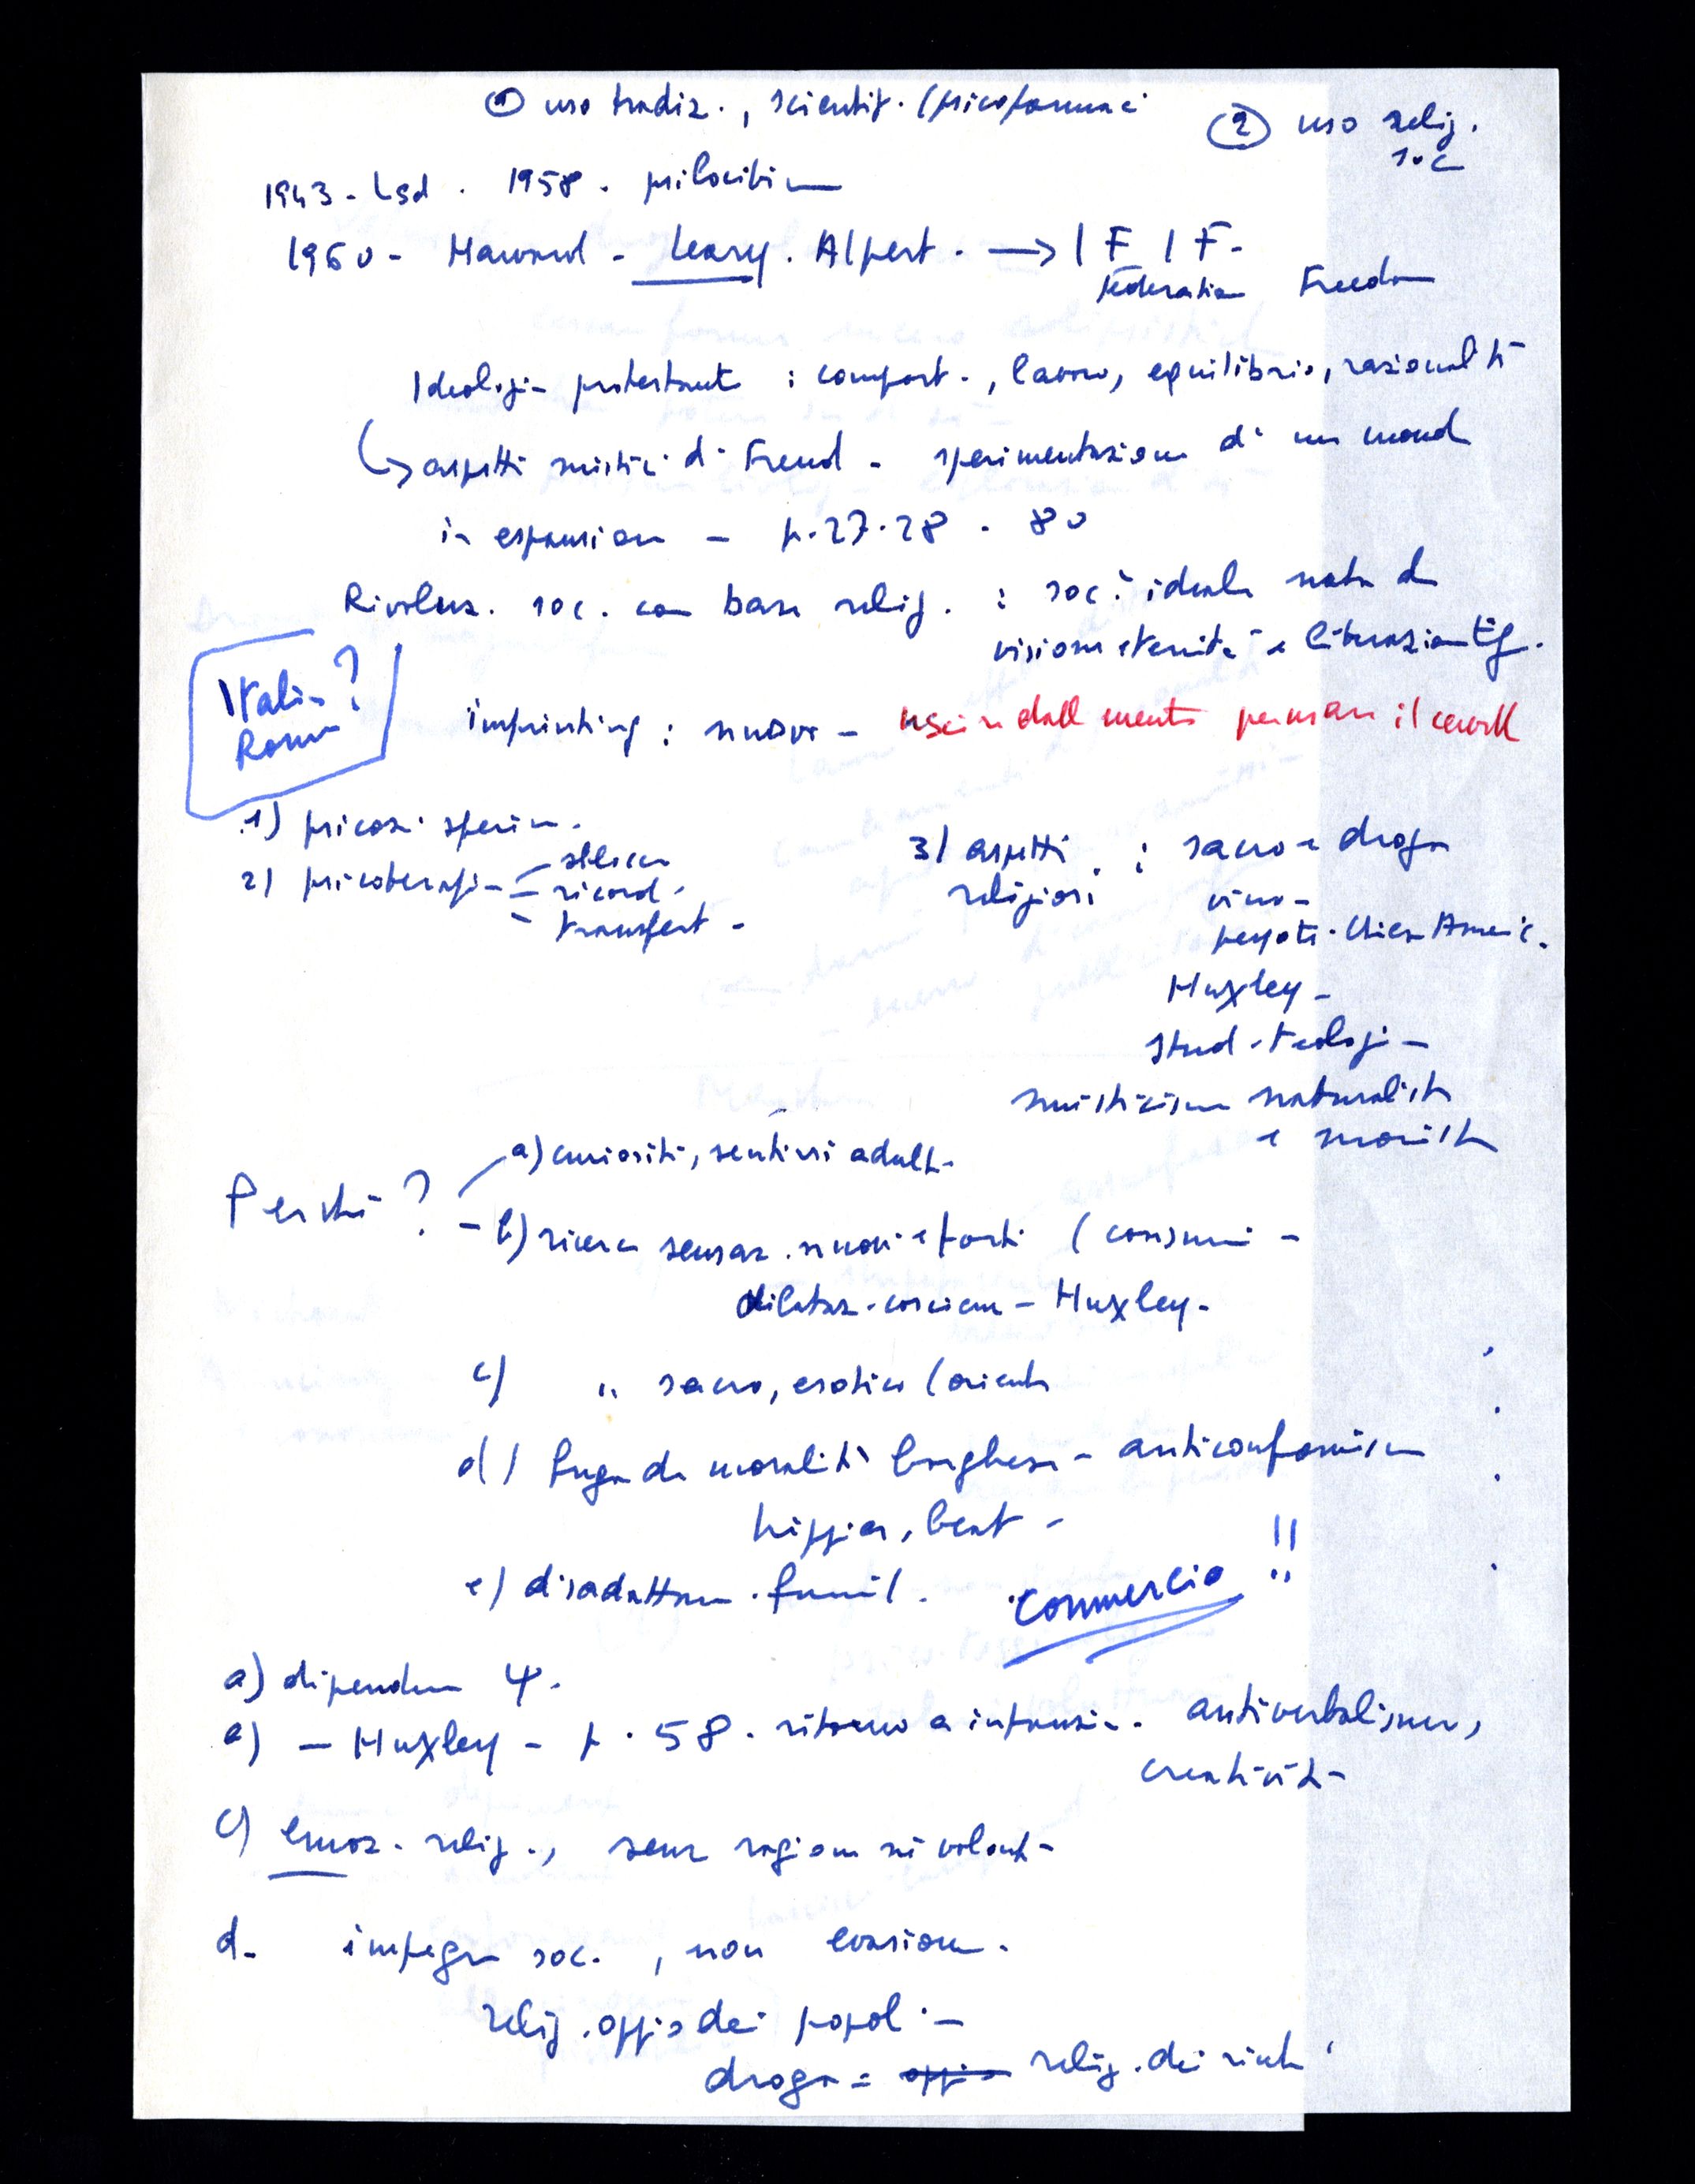 ① uso tradiz., scientif. (psicofarmaci
② uso relig.
soc
1943 - Lsd . 1958 . psilocibina
1960 - Harvard - Leary . Alpert . → I F I F -
Federation Freedom
Ideologia protestante : comport., lavoro, equilibrio, razionalità
↳ aspetti mistici di Freud - sperimentazione di un mondo
in espansione - p. 27.28 . 80
Rivoluz. soc. con base relig. : soc. ideale nata da
visione eternità e liberazione
Italia ?
Roma
imprinting : nuovo - uscire dalla mente per usare il cervello
1) psicosi sperim.
2) psicoterapia
ricord.
transfert -
3) aspetti religiosi : sacro e droga
vino -
peyote - Chiesa Americ.
Huxley -
stud. teologia
misticismo naturalista
e monista
Perché ? a) curiosità, sentirsi adulti
- b) ricerca sensaz. nuove e forti ( consumi -
dilataz. coscienza - Huxley -
c) " sacro, esotico ( oriente
d) fuga da moralità borghese - anticonformismo
hippies, beat -
e) disadattam. famil.
Commercio !!
a) dipendenza ψ.
- Huxley - p. 58 . ritorno a infanzia . antiverbalismo,
creatività -
c) emoz. relig., senza ragione né volontà
d - impegno soc., non evasione.
relig. oppio dei popoli -
droga = oppio relig. dei ricchi